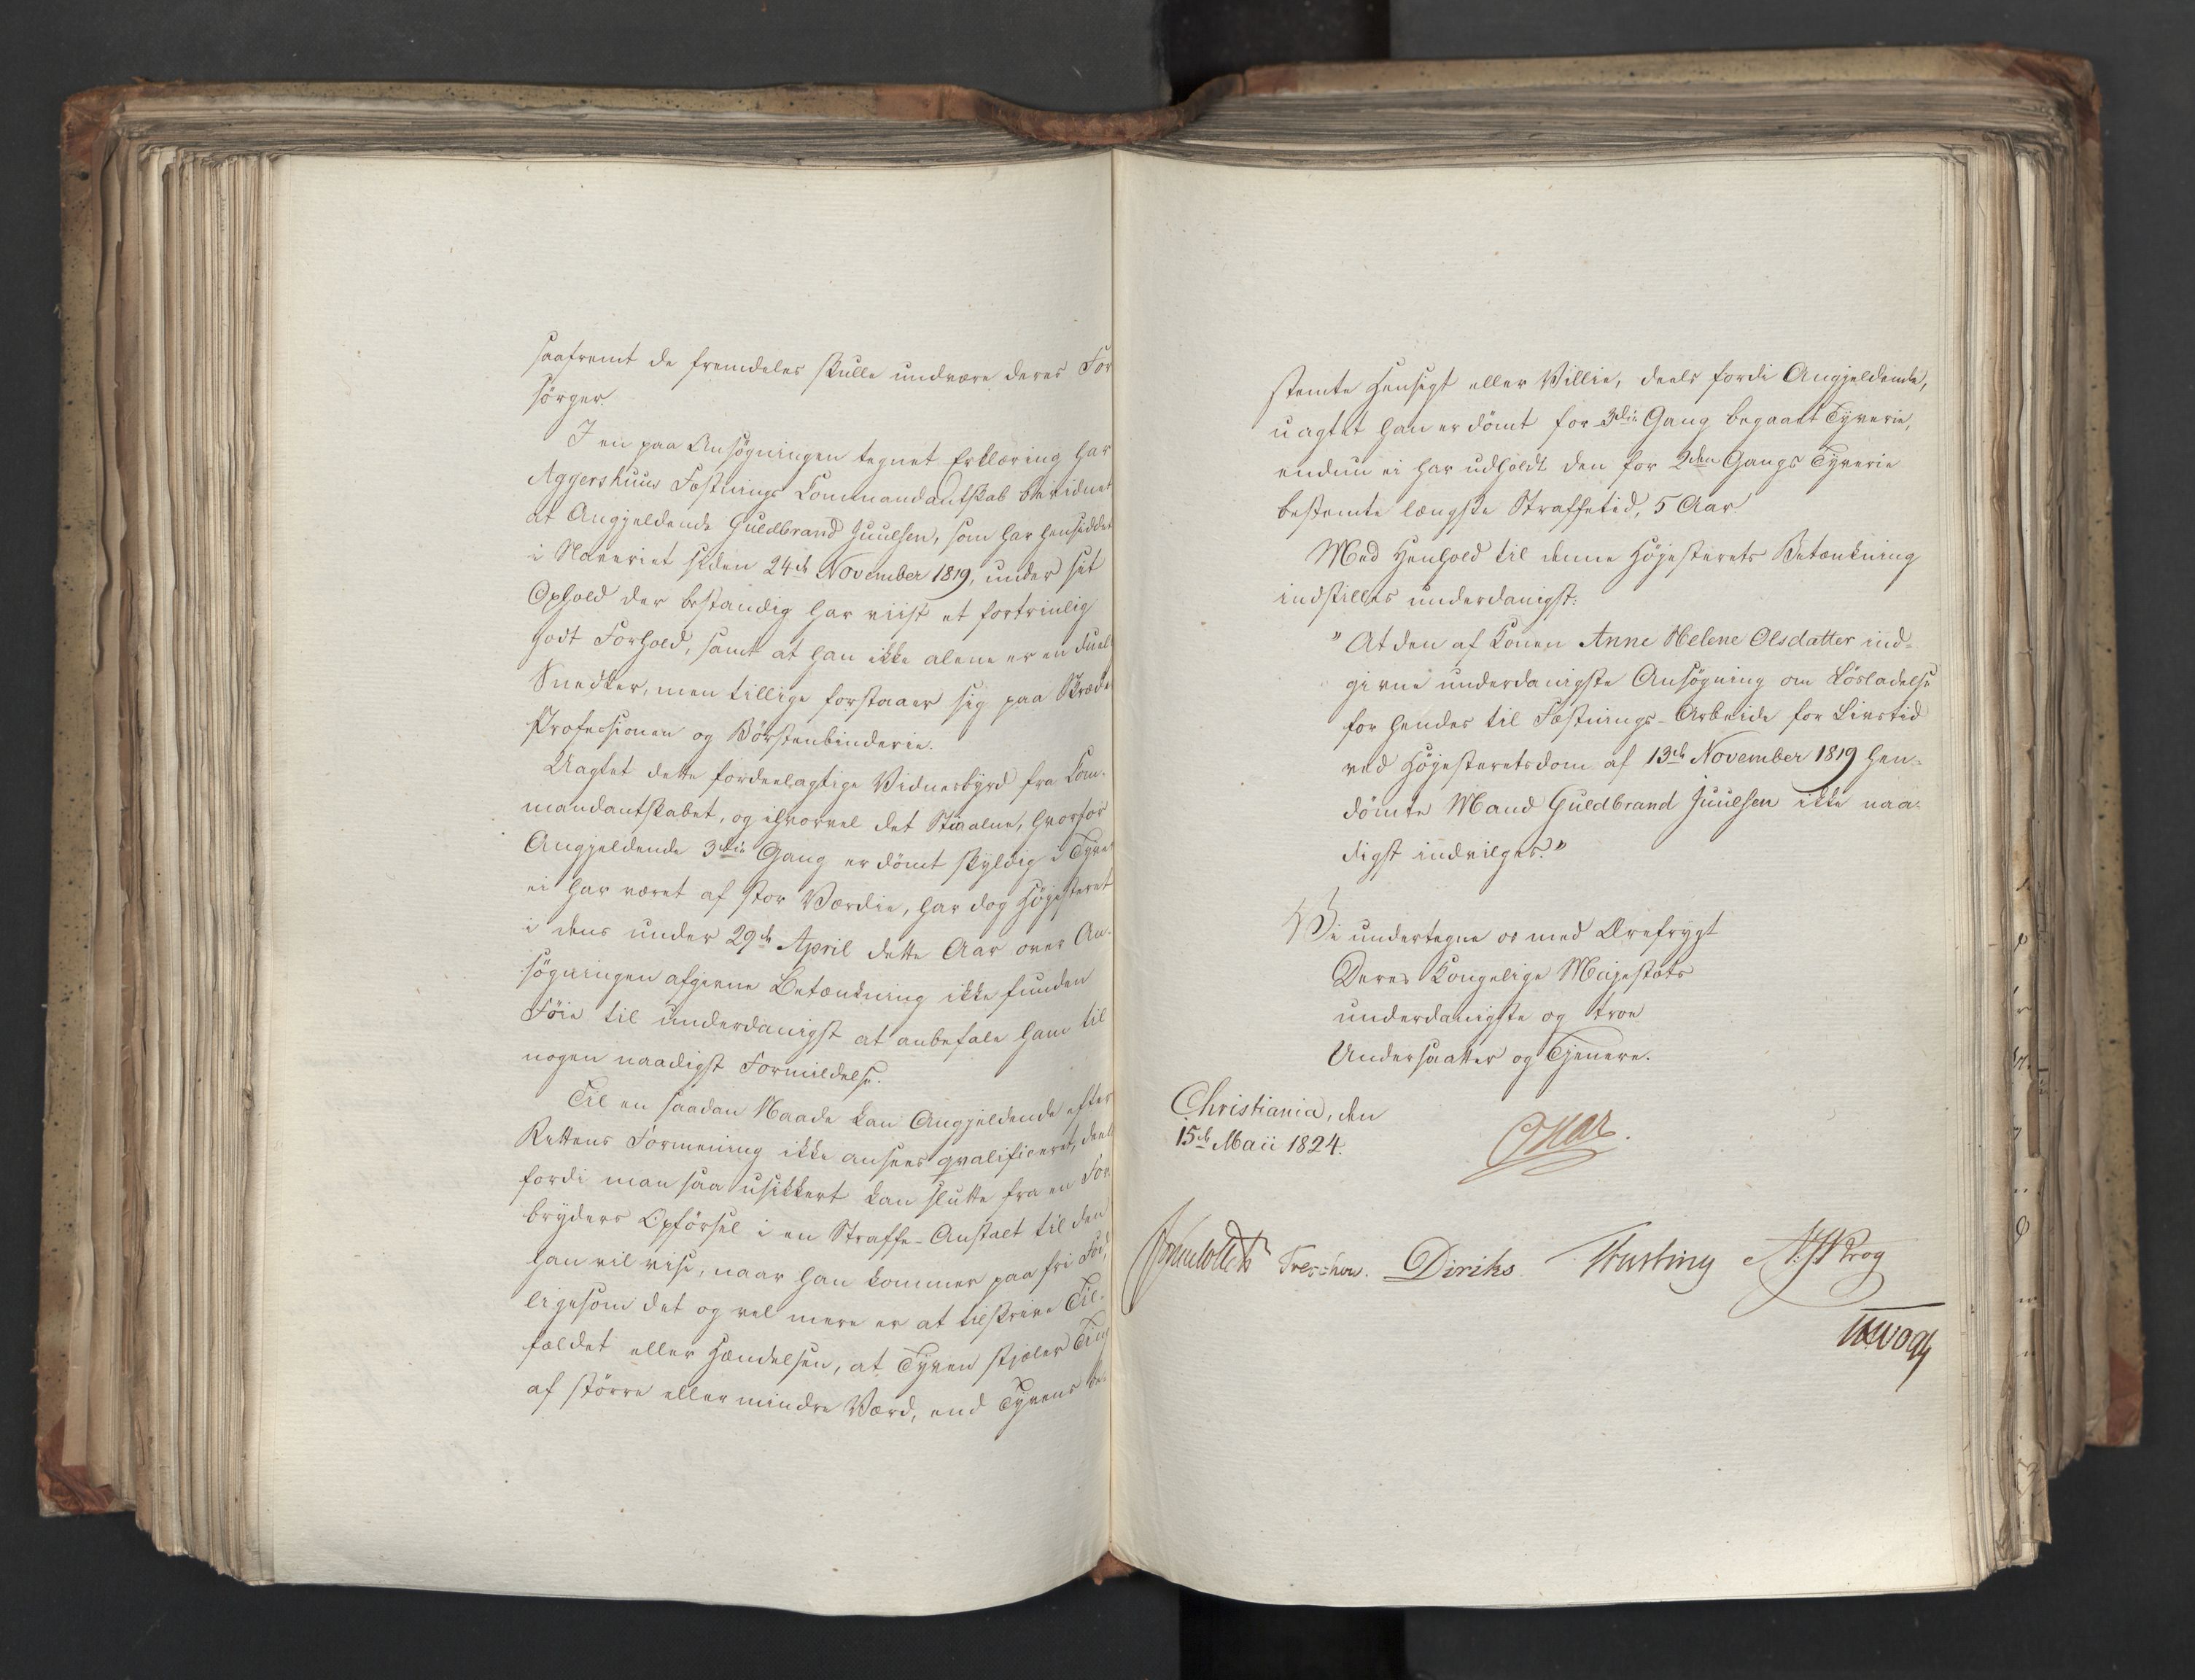 saafremt de fremdeles skulle undvære deres For
sörger.
I en paa Ansögningen tegnet Erklæring har
Aggershuus Fæstnings Commandantskab bevidnet
at Angjeldende Guldbrand Juulsen, som har hensiddet
i Slaveriet siden 24de November 1819, under sit
Ophold der bestandig har viist et fortrinlig
godt Forhold, samt at han ikke alene er en duel
Snedker, men tillige forstaaer sig paa
Professionen og Börstenbinderie.
Uagtet dette fordeelagtige Vidnesbyrd fra Com-
mandantskabet, og ihvorvel det Stiaalne, hvorfor
Angjeldende 3die Gang er dömt skyldig i Tyve
ei har været af stor Værdie, har dog Höjesteret
i dens under 29de April dette Aar over An-
sögningen afgivne Betænkning ikke funden
Föie til underdanigst at anbefale ham til
nogen naadigst Formildelse.
Til en saadan Naade kan Angjeldende efter
Rettens Formening ikke ansees qvalificeret, deels
fordi man saa usikkert kan slutte fra en For-
bryders Opförsel i en Straffe-Anstalt til den
han vil vise, naar han kommer paa fri Fod,
ligesom det og vel mere er at tilskrive Til-
fældet eller Hændelsen, at Tyven stjæler Ting
af större eller mindre Værd, end Tyvens be-
stemte Hensigt eller Villie, deels fordi Angjeldende,
uagtet han er dömt for 3die Gang begaaet Tyverie,
endnu ei har udholdt den for 2den Gangs Tyverie
bestemte længste Straffetid, 5 Aar.
Med Henhold til denne Höjesterets Betænkning
indstilles underdanigst:
"At den af Konen Anne Helene Olsdatter ind-
givne underdanigste Ansögning om Lösladelse
for hendes til Fæstnings-Arbeide for Livstid
ved Höjesteretsdom af 13de November 1819 hen-
dömte Mand Guldbrand Juulsen ikke naa-
digst indvilges."
Vi undertegne os med Ærefrygt
Deres Kongelige Majestæts
underdanigste og troe
Undersaatter og Tjenere.
Christiania, den
15de Maii 1824.
Oskar.
Treschow. Diriks